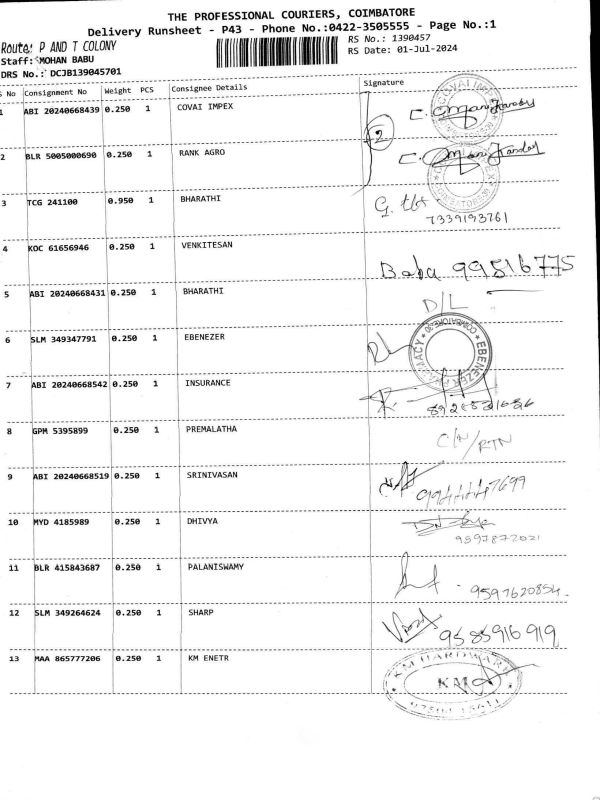 THE PROFESSIONAL COURIERS, COIMBATORE
Delivery Runsheet - P43 - Phone No.:0422-3505555 - Page No.:1
Route: P AND T COLONY
RS No.: 1390457
Staff: MOHAN BABU
RS Date: 01-Jul-2024
DRS No.: DCJB139045701
S No Consignment No Weight PCS Consignee Details Signature
1 ABI 20240668439 0.250 1 COVAI IMPEX
2
2 BLR 5005000690 0.250 1 RANK AGRO
3 TCG 241100 0.950 1 BHARATHI
7339193761
4 KOC 61656946 0.250 1 VENKITESAN
Baba 99516775
5 ABI 20240668431 0.250 1 BHARATHI
D/L
6 SLM 349347791 0.250 1 EBENEZER
EBENEZER PHARMACY
7 ABI 20240668542 0.250 1 INSURANCE
8 GPM 5395899 0.250 1 PREMALATHA
C/N/RTN
9 ABI 20240668519 0.250 1 SRINIVASAN
10 MYD 4185989 0.250 1 DHIVYA
9597872021
11 BLR 415843687 0.250 1 PALANISWAMY
9597620854
12 SLM 349264624 0.250 1 SHARP
9585916919
13 MAA 865777206 0.250 1 KM ENETR
KM HARDWARE
KM